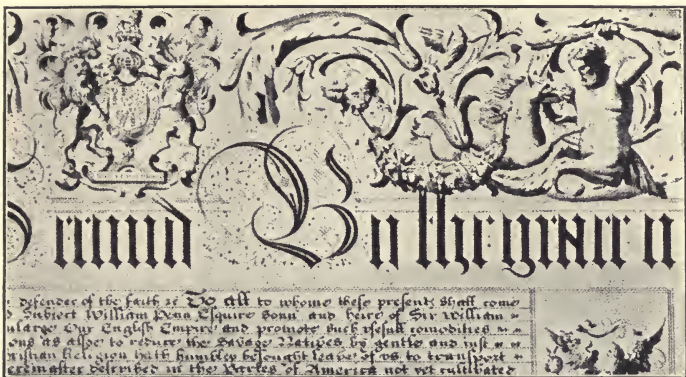 By the grace
defender of the faith &c To all to whome these presents shall come
Subiect William Penn Esquire sonn and heire of Sir William
enlarge Our English Empire and promote such usefull comodities
as alsoe to reduce the Savage Natives by gentle and iust
Christian Religion hath humbley besought leave of us to transport
described in the Partes of America not yet cultivated